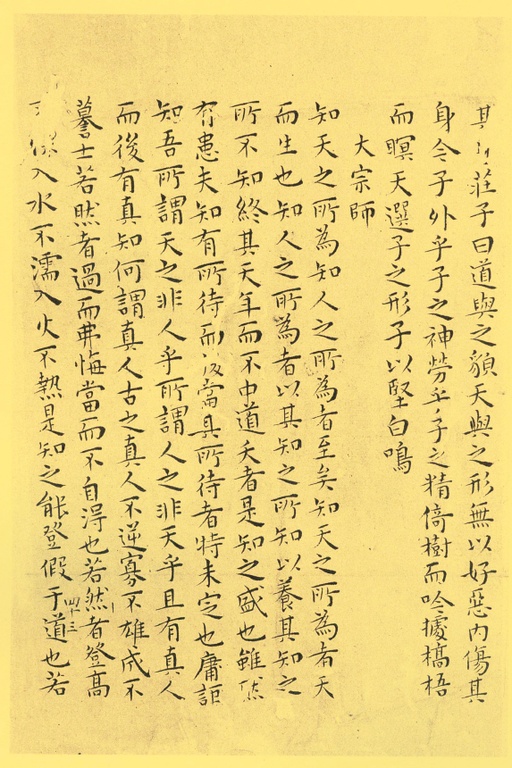 其 莊子曰道與之貌天與之形無以好惡內傷其
身今子外乎子之神勞乎子之精倚樹而吟據槁梧
而瞑天選子之形子以堅白鳴
大宗師
知天之所為知人之所為者至矣知天之所為者天
而生也知人之所為者以其知之所知以養其知之
所不知終其天年而不中道夭者是知之盛也雖然
有患夫知有所待而後當其所待者特未定也庸詎
知吾所謂天之非人乎所謂人之非天乎且有真人
而後有真知何謂真人古之真人不逆寡不雄成不
謩士若然者過而弗悔當而不自得也若然者登高
不 入水不濡入火不熱是知之能登假于道也若
四十三